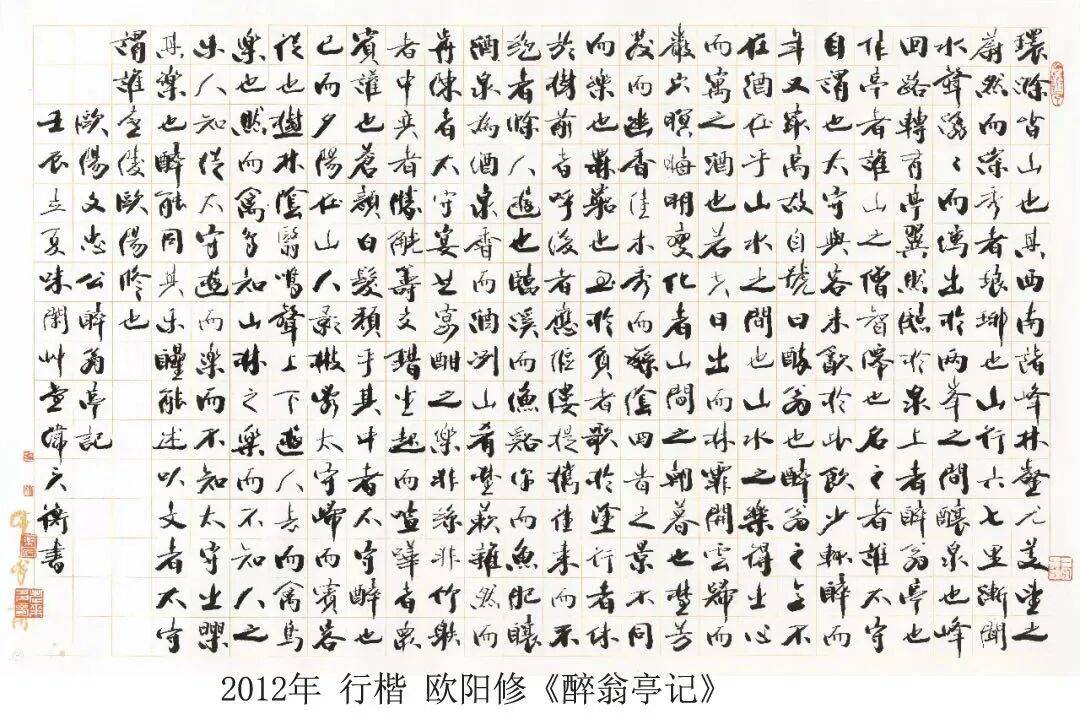 環滁皆山也其西南諸峰林壑尤美望之
蔚然而深秀者琅琊也山行六七里漸聞
水聲潺々而瀉出於兩峯之間釀泉也峰
回路轉有亭翼然臨於泉上者醉翁亭也
作亭者誰山之僧智僊也名之者誰太守
自謂也太守與客來飲於此飲少輒醉而
年又最高故自號曰醉翁也醉翁之意不
在酒在乎山水之間也山水之樂得之心
而寓之酒也若夫日出而林霏開雲歸而
巖穴暝晦明變化者山間之朝暮也野芳
發而幽香佳木秀而繁陰四時之景不同
而樂也無窮也至於負者歌於塗行者休
於樹前者呼後者應傴僂提攜往來而不
絕者滁人遊也臨溪而漁谿深而魚肥釀
酒泉為酒泉香而酒洌山肴野蔌雜然而
前陳者太守宴也宴酣之樂非絲非竹射
者中弈者勝觥籌交錯坐起而諠譁者眾
賓讙也蒼顏白髮頹乎其中者太守醉也
已而夕陽在山人影散亂太守歸而賓客
從也樹林陰翳鳴聲上下遊人去而禽鳥
樂也然而禽鳥知山林之樂而不知人之
樂人知從太守遊而樂而不知太守之樂
其樂也醉能同其樂醒能述以文者太守
謂誰廬陵歐陽修也
歐陽文忠公醉翁亭記
壬辰立夏味閑艸堂韓天衡書
2012年 行楷 欧阳修《醉翁亭记》